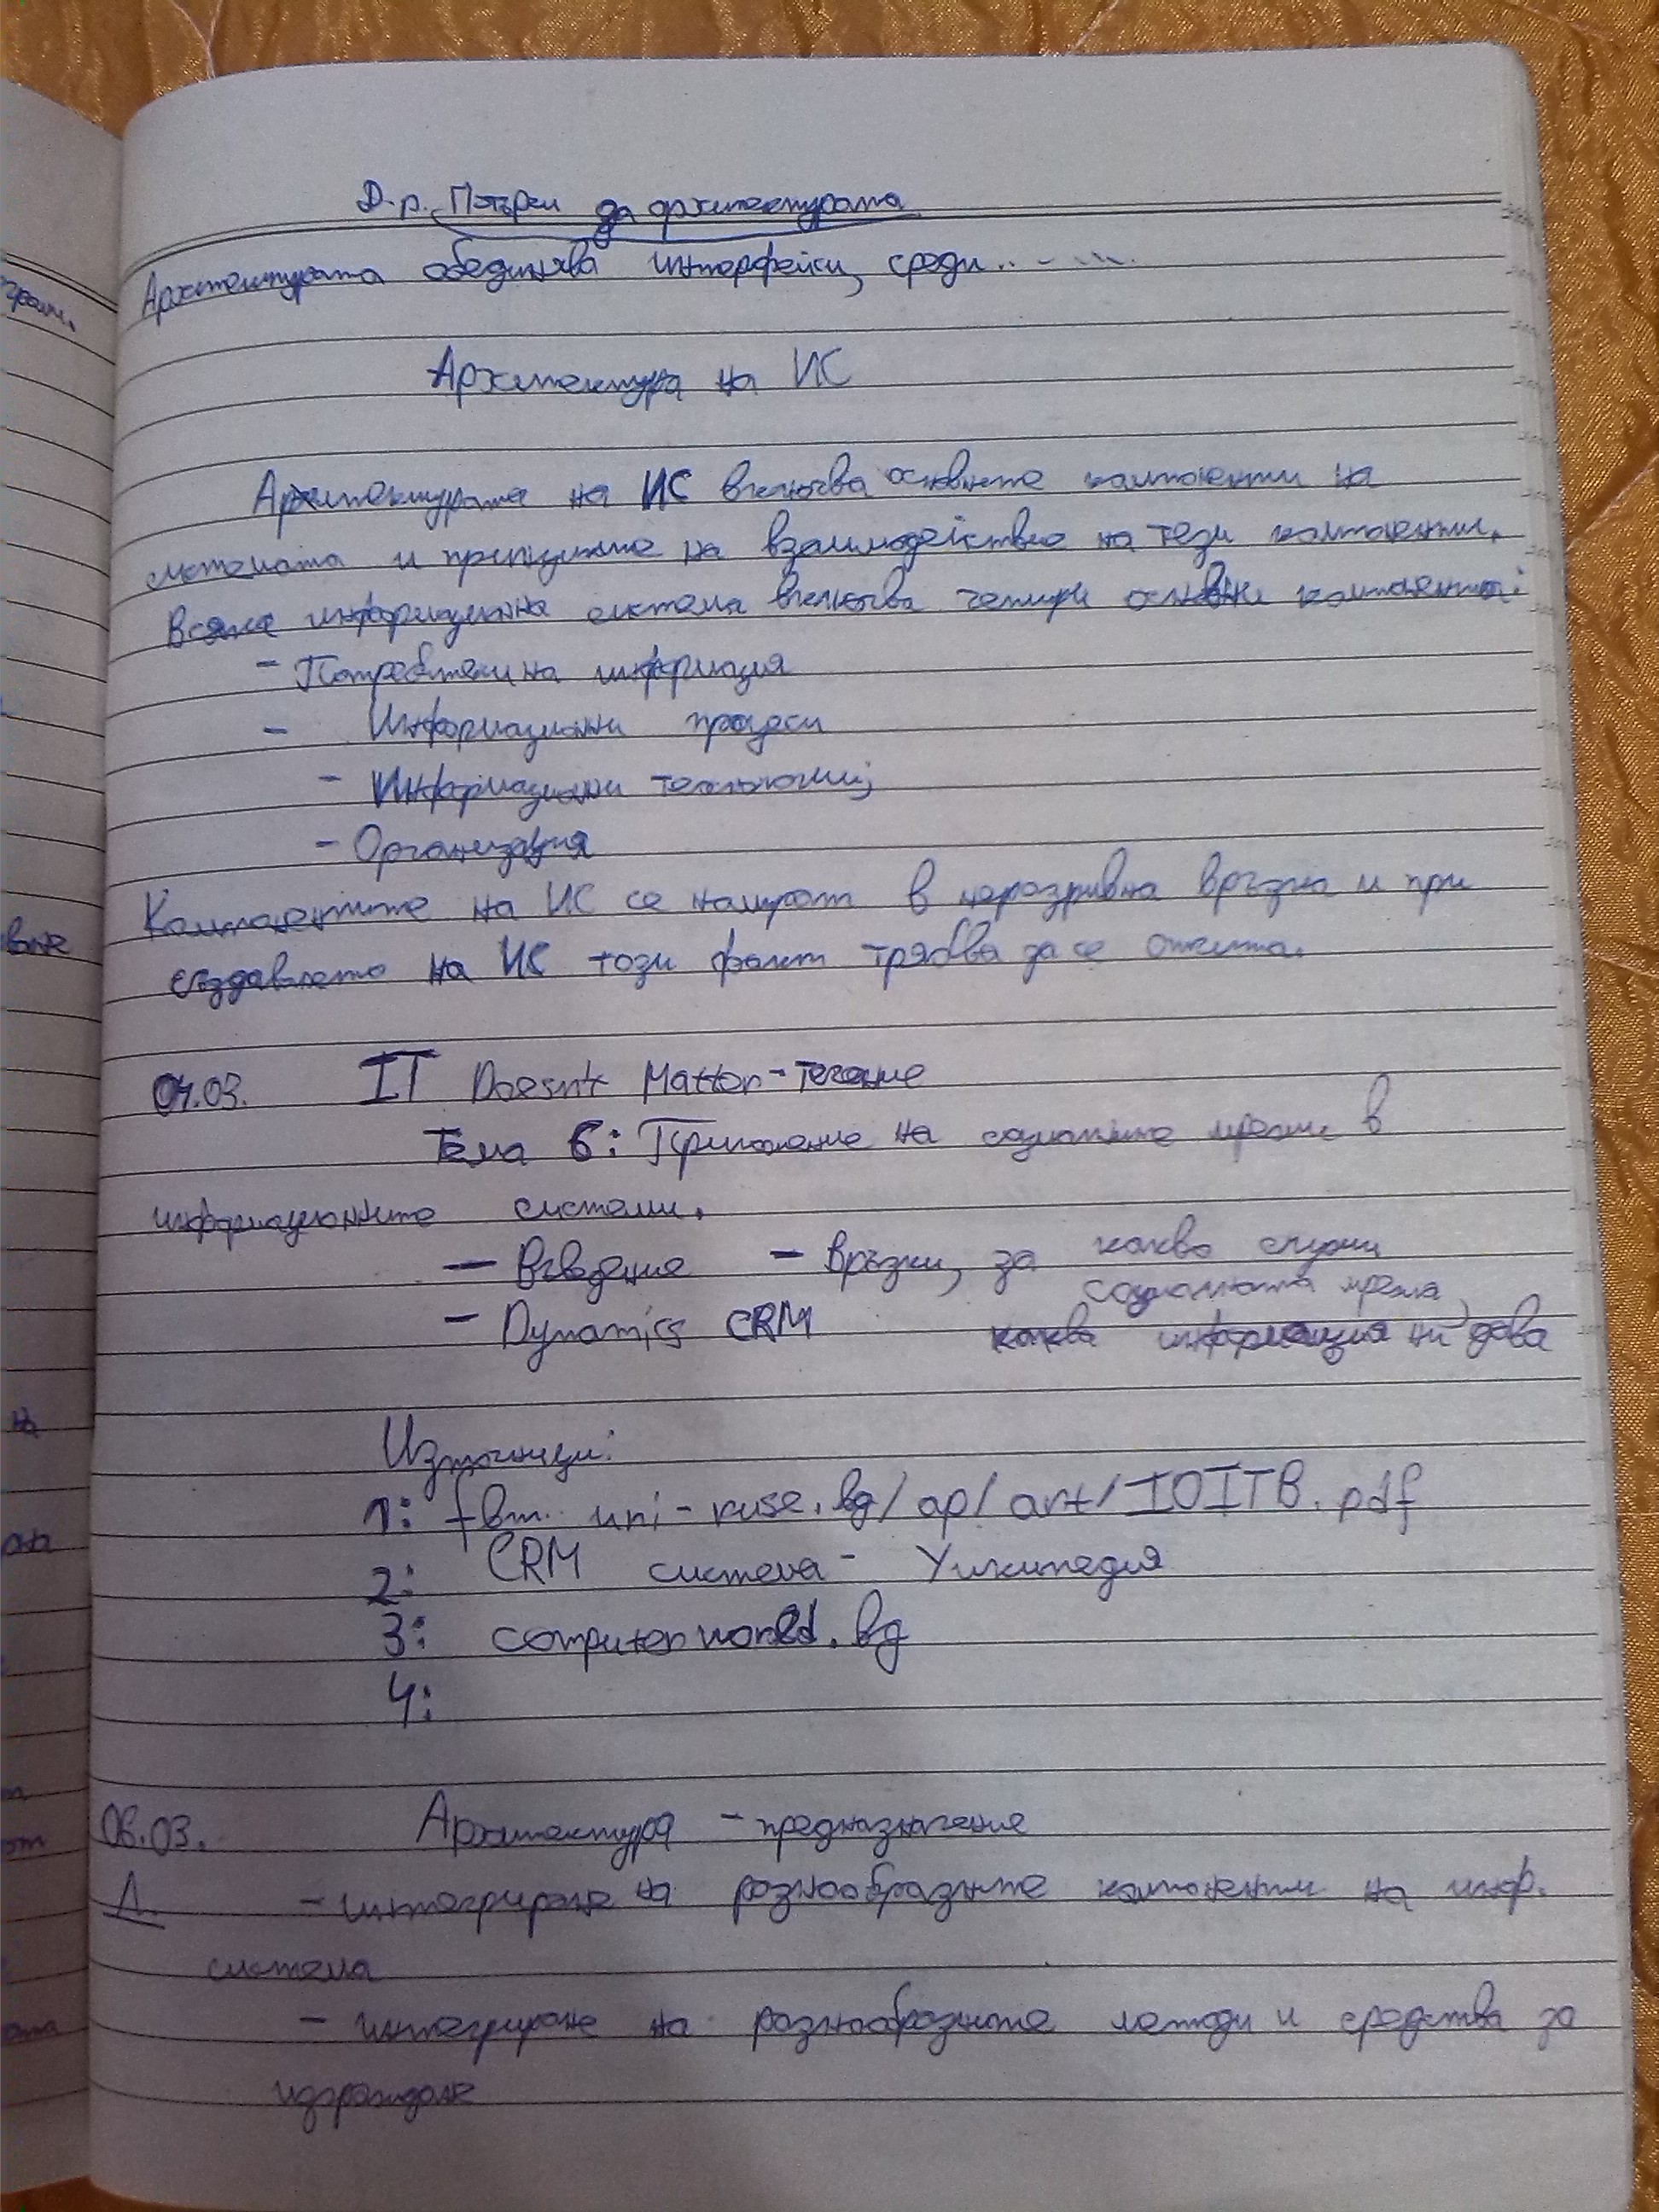 Д.р. Потърси да архитектурата
Архитектурата обединява интерфейси, среди.. - ....
Архитектура на ИС
Архитектурата на ИС включва основните компоненти на
системата и принципите на взаимодействие на тези компоненти.
Всяка информационна система включва четири основни компонента:
- Потребители на информация
- Информационни процеси
- Информационни технологии;
- Организация
Компонентите на ИС се намират в неразривна връзка и при
създаването на ИС този факт трябва да се отчита.
04.03. IT Doesn't Matter - течение
Тема 6: Приложение на социалните мрежи в
информационните системи.
- Въведение - Връзки, за какво служи
социалната мрежа,
- Dynamics CRM каква информация ни дава
Източници:
1: fbm.uni-ruse.bg/ap/art/IOITB.pdf
2: CRM система - Уикипедия
3: computerworld.bg
4:
06.03. Архитектура - предназначение
Л. - интегриране на разнообразните компоненти на инф.
система
- интегриране на разнообразните методи и средства за
изграждане